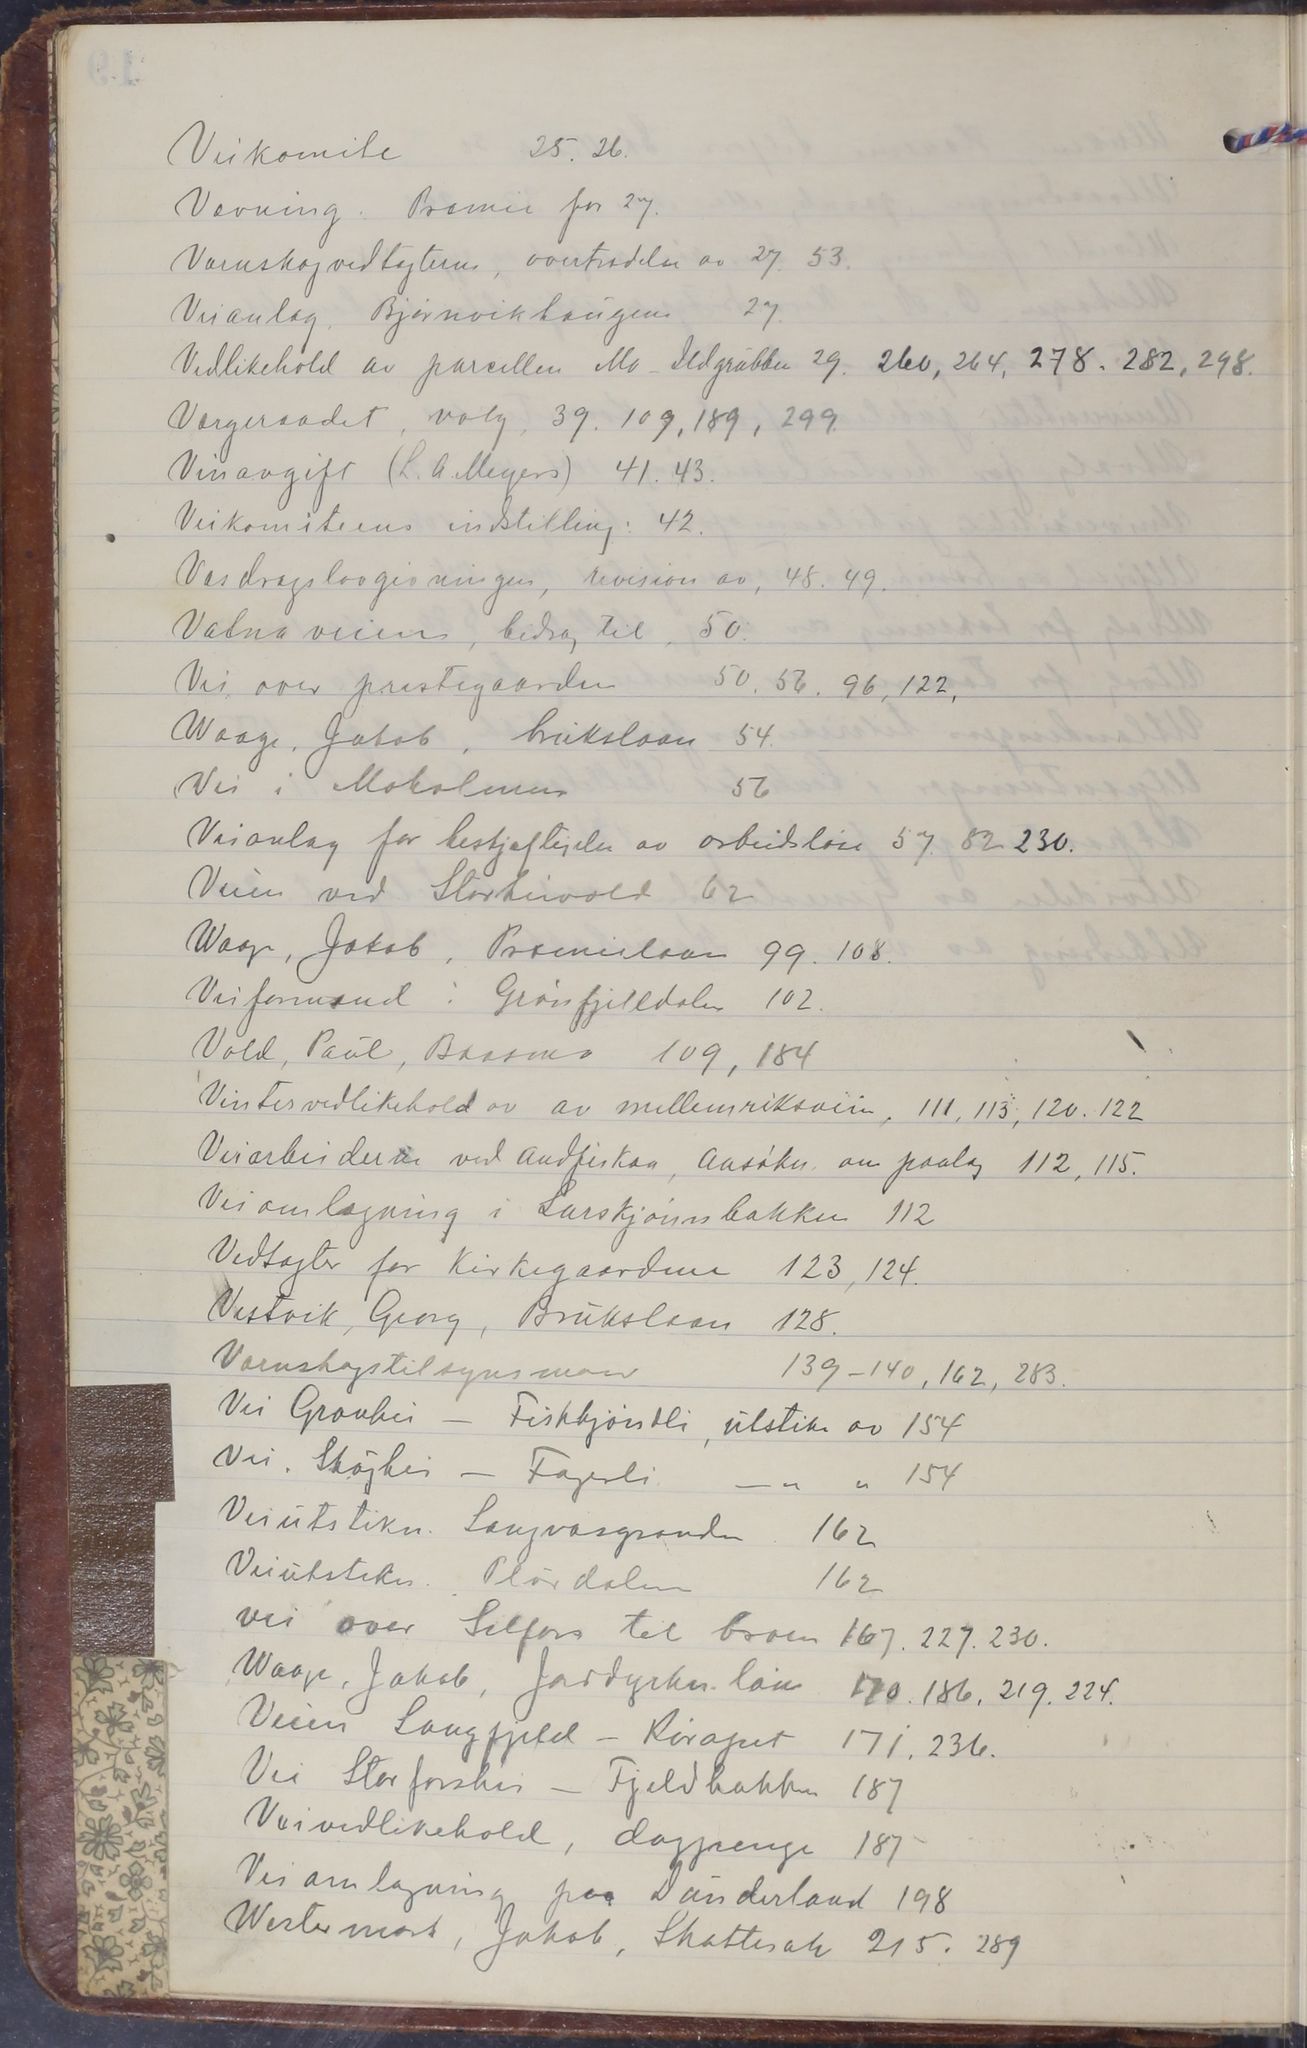 Veikomite 25. 26.
Vævning. Præmie for 27.
Værnskogvedtægterne, overtrædelse av 27. 53.
Veianlæg, Bjørnevikhaugene 27.
Vedlikehold av parcellen Mo - Ildgrubben 29. 260, 264, 278. 282, 298.
Vergeraadet, valg, 39. 109, 189, 299.
Vinavgift (L. A. Meyers) 41. 43.
Veikomiteens indstilling: 42.
Vasdragslovgivningen, revision av, 48. 49.
veiens, bidrag til, 50.
Vei over prestegaarden 50. 56. 96, 122,
Waage, Jakob, brukslaan 54.
Vei i Moholmen 56
Veianlæg for beskjæftigelse av arbeidsløse 57. 82 230.
Veien ved Storheivold 62
Waage, Jakob, Præmielaan 99. 108.
Veiformand i Grønfjelldalen 102.
Vold, Paul, Baasmo 109, 184
Vintervedlikehold av av mellemriksveien, 111, 113, 120. 122
Veiarbeiderne ved Andfiskaa, Ansøkn. om paalæg 112, 115.
Veiomlægning i Larskjønnbakken 112
Vedtægter for Kirkegaardene 123, 124.
Vestvik, Georg, Brukslaan 128.
Værnskogstilsynsmænd 139-140, 162, 283.
Vei Grønhei - Fiskkjøndli, utstikn av 154
Vei. Skoghei - Fagerli. —„ „ 154
Veiutstikn. Langvasgranden 162
Veiutstikn. Plurdalen 162
vei over Selfors til broen 167. 227. 230.
Waage, Jakob, Jorddyrkn. laan 170. 186. 219. 224.
Veien Langfjeld - Røvaset 171. 236.
Vei Storforshei - Fjeldbakken 187
Veivedlikehold, dagpenge 187
Veiomlægning paa Dunderland 198
Westermark, Jakob, Skattesak 215. 289